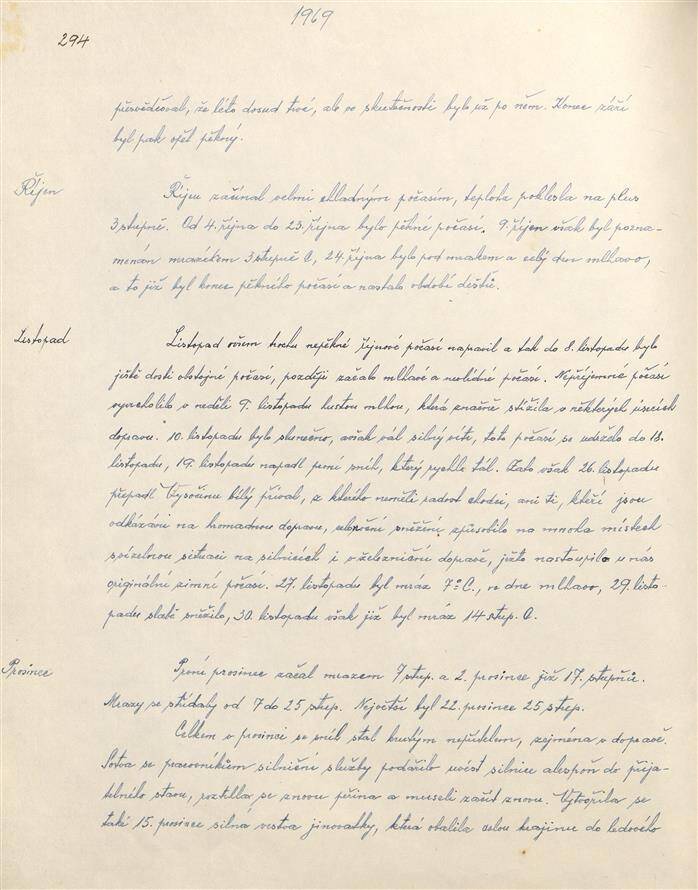 1969
294
přesvědčoval, že léto dosud trvá, ale ve skutečnosti bylo už po něm. Konec září
byl pak opět pěkný.
Říjen
Říjen začínal velmi chladným počasím, teplota poklesla na plus
3 stupně. Od 4. října do 23. října bylo pěkné počasí. 9. říjen však byl pozna-
menán mrazíkem 3 stupně C, 24. října bylo pod mrakem a celý den mlhavo,
a to již byl konec pěkného počasí a nastalo období dešťů.
Listopad
Listopad ovšem trochu nepěkné říjnové počasí napravil a tak do 8. listopadu bylo
ještě dosti obstojné počasí, později začalo mlhavé a nevlídné počasí. Nepříjemné počasí
vyvrcholilo v neděli 9. listopadu hustou mlhou, která značně stížila v některých úsecích
dopravu. 10. listopadu bylo slunečno, avšak vál silný vítr, toto počasí se udrželo do 18.
listopadu, 19. listopadu napadl první sníh, který rychle tál. Zato však 26. listopadu
přepadl Vysočinu bílý příval, z kterého neměli radost chodci, ani ti, kteří jsou
odkázáni na hromadnou dopravu, sněžení způsobilo na mnoha místech
svízelnou situaci na silnicích i v železniční dopravě, jižto nastoupilo u nás
originální zimní počasí. 27. listopadu byl mráz 7° C., ve dne mlhavo, 29. listo-
padu slabě sněžilo, 30. listopadu však již byl mráz 14 stup. C.
Prosinec
První prosinec začal mrazem 7 stup. a 2. prosince již 17. stupňů.
Mrazy se střídaly od 7 do 25 stup. Největší byl 22. prosince 25 stup.
Celkem v prosinci se sníh stal krutým nepřítelem, zejména v dopravě.
Sotva se pracovníkům silniční služby podařilo uvést silnice alespoň do přija-
telného stavu, roztrhla se znovu peřina a museli začít znovu. Vytvořila se
také 15. prosince silná vrstva jinovatky, která obalila celou krajinu do ledového